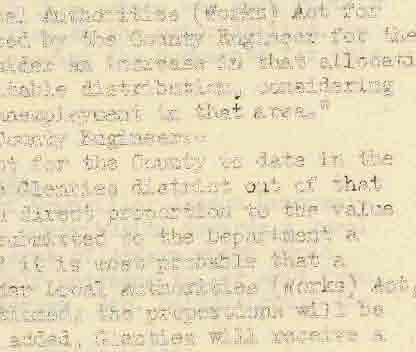 Authorities (Works) Act for
by the County Engineer for the
an increase in that
table distribution, considering
unemployment in that area."
County Engineer
for the County to date in the
district out of that
direct proportion to the value
submitted to the Department a
it is most probable that a
Local Authorities (Works) Act,
the proportions will be
added, Glenties will receive a